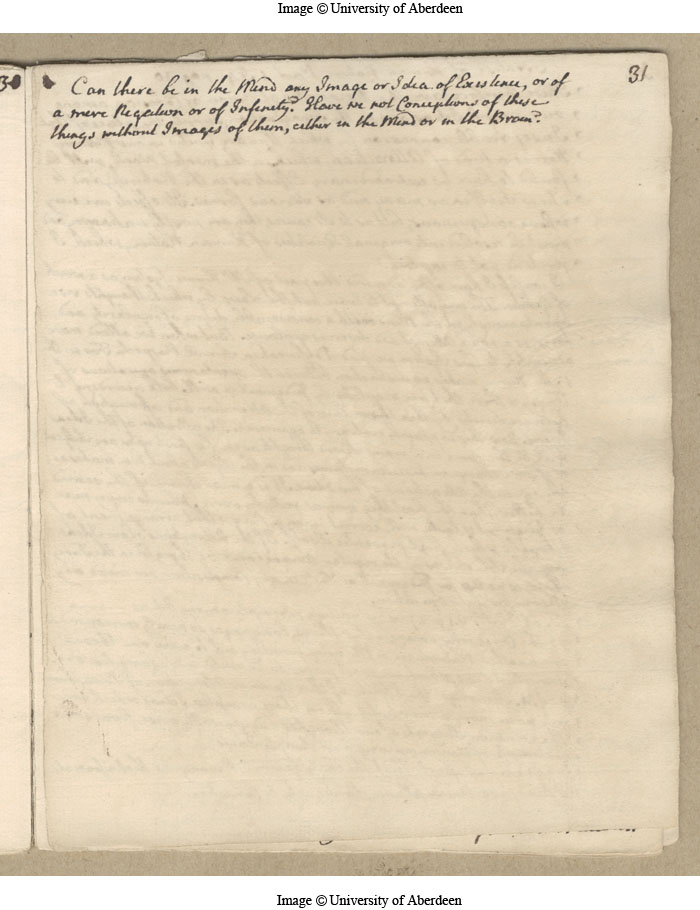 Image © University of Aberdeen
30
31
Can there be in the Mind any Image or Idea of Existence, or of
a mere Negation or of Infinity? Have we not Conceptions of these
things without Images of them, either in the Mind or in the Brain?
Image © University of Aberdeen